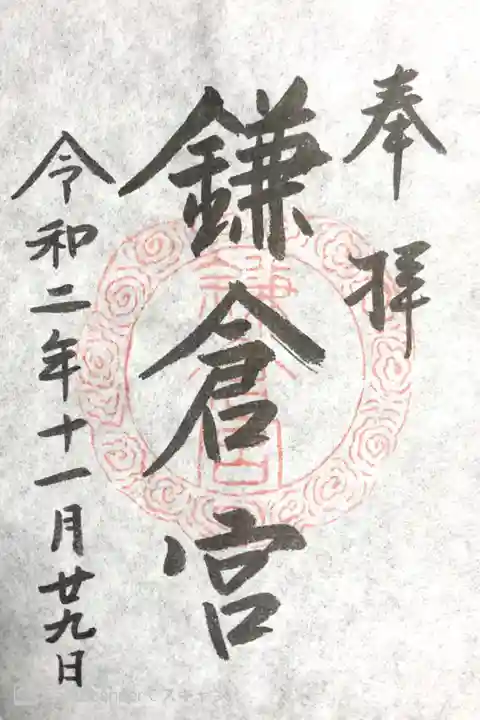 奉拝
鎌倉宮
令和二年十一月廿九日
鎌倉宮